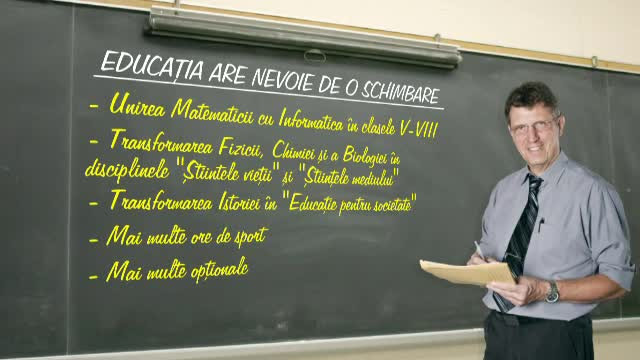 EDUCAȚIA ARE NEVOIE DE O SCHIMBARE
- Unirea Matematicii cu Informatica în clasele V-VIII
- Transformarea Fizicii, Chimiei și a Biologiei în
disciplinele "Științele vieții" și "Științele mediului"
- Transformarea Istoriei în "Educație pentru societate"
- Mai multe ore de sport
- Mai multe opționale